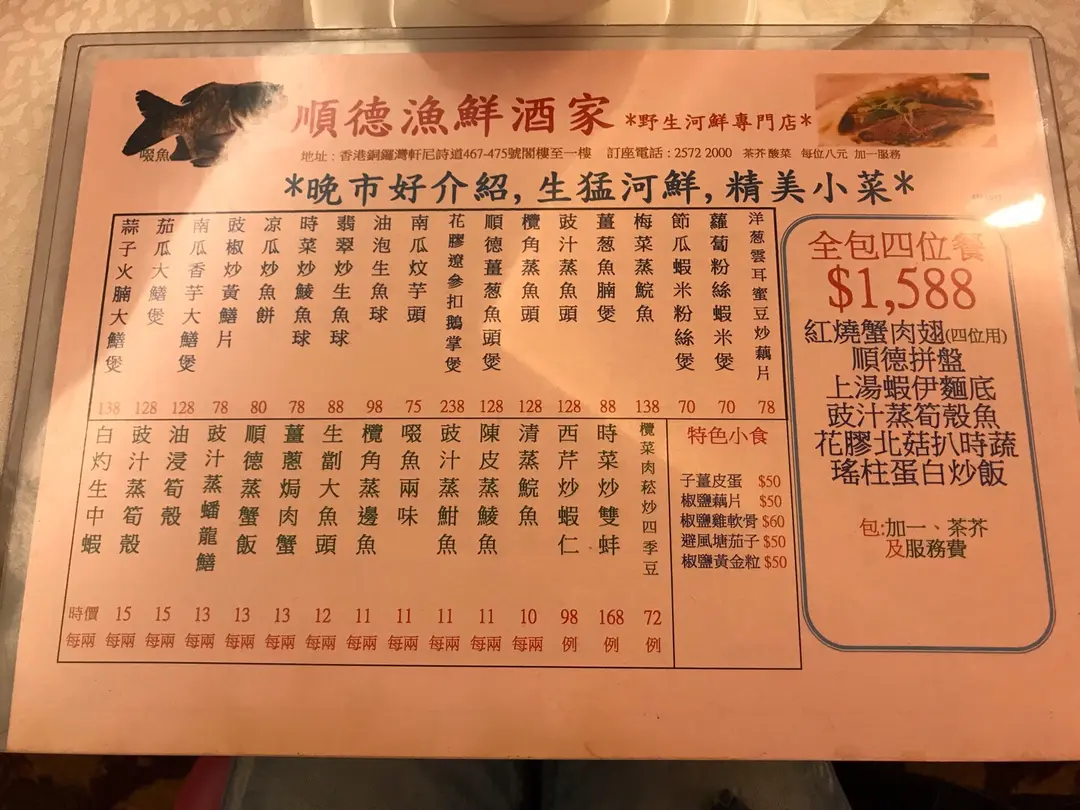 順德漁鮮酒家 *野生河鮮專門店*
啜魚
地址：香港銅鑼灣軒尼詩道467-475號閣樓至一樓 訂座電話：2572 2000 茶芥酸菜 每位八元 加一服務
*晚市好介紹,生猛河鮮,精美小菜*
洋葱雲耳蜜豆炒藕片 78
蘿蔔粉絲蝦米煲 70
節瓜蝦米粉絲煲 70
梅菜蒸鯇魚 138
薑葱魚腩煲 88
豉汁蒸魚頭 128
欖角蒸魚頭 128
順德薑葱魚頭煲 128
花膠遼參扣鵝掌煲 238
南瓜炆芋頭 75
油泡生魚球 98
翡翠炒生魚球 88
時菜炒鯪魚球 78
凉瓜炒魚餅 80
豉椒炒黃鱔片 78
南瓜香芋大鱔煲 128
茄瓜大鱔煲 128
蒜子火腩大鱔煲 138
欖菜肉菘炒四季豆 72 例
時菜炒雙蚌 168 例
西芹炒蝦仁 98 例
清蒸鯇魚 10 每兩
陳皮蒸鯪魚 11 每兩
豉汁蒸魽魚 11 每兩
啜魚兩味 11 每兩
欖角蒸邊魚 11 每兩
生劏大魚頭 12 每兩
薑蔥焗肉蟹 13 每兩
順德蒸蟹飯 13 每兩
豉汁蒸蟠龍鱔 13 每兩
油浸筍殼 15 每兩
豉汁蒸筍殼 15 每兩
白灼生中蝦 時價 每兩
特色小食
子薑皮蛋 $50
椒鹽藕片 $50
椒鹽雞軟骨 $60
避風塘茄子 $50
椒鹽黃金粒 $50
全包四位餐
$1,588
紅燒蟹肉翅(四位用)
順德拼盤
上湯蝦伊麵底
豉汁蒸筍殼魚
花膠北菇扒時蔬
瑤柱蛋白炒飯
包:加一、茶芥
及服務費